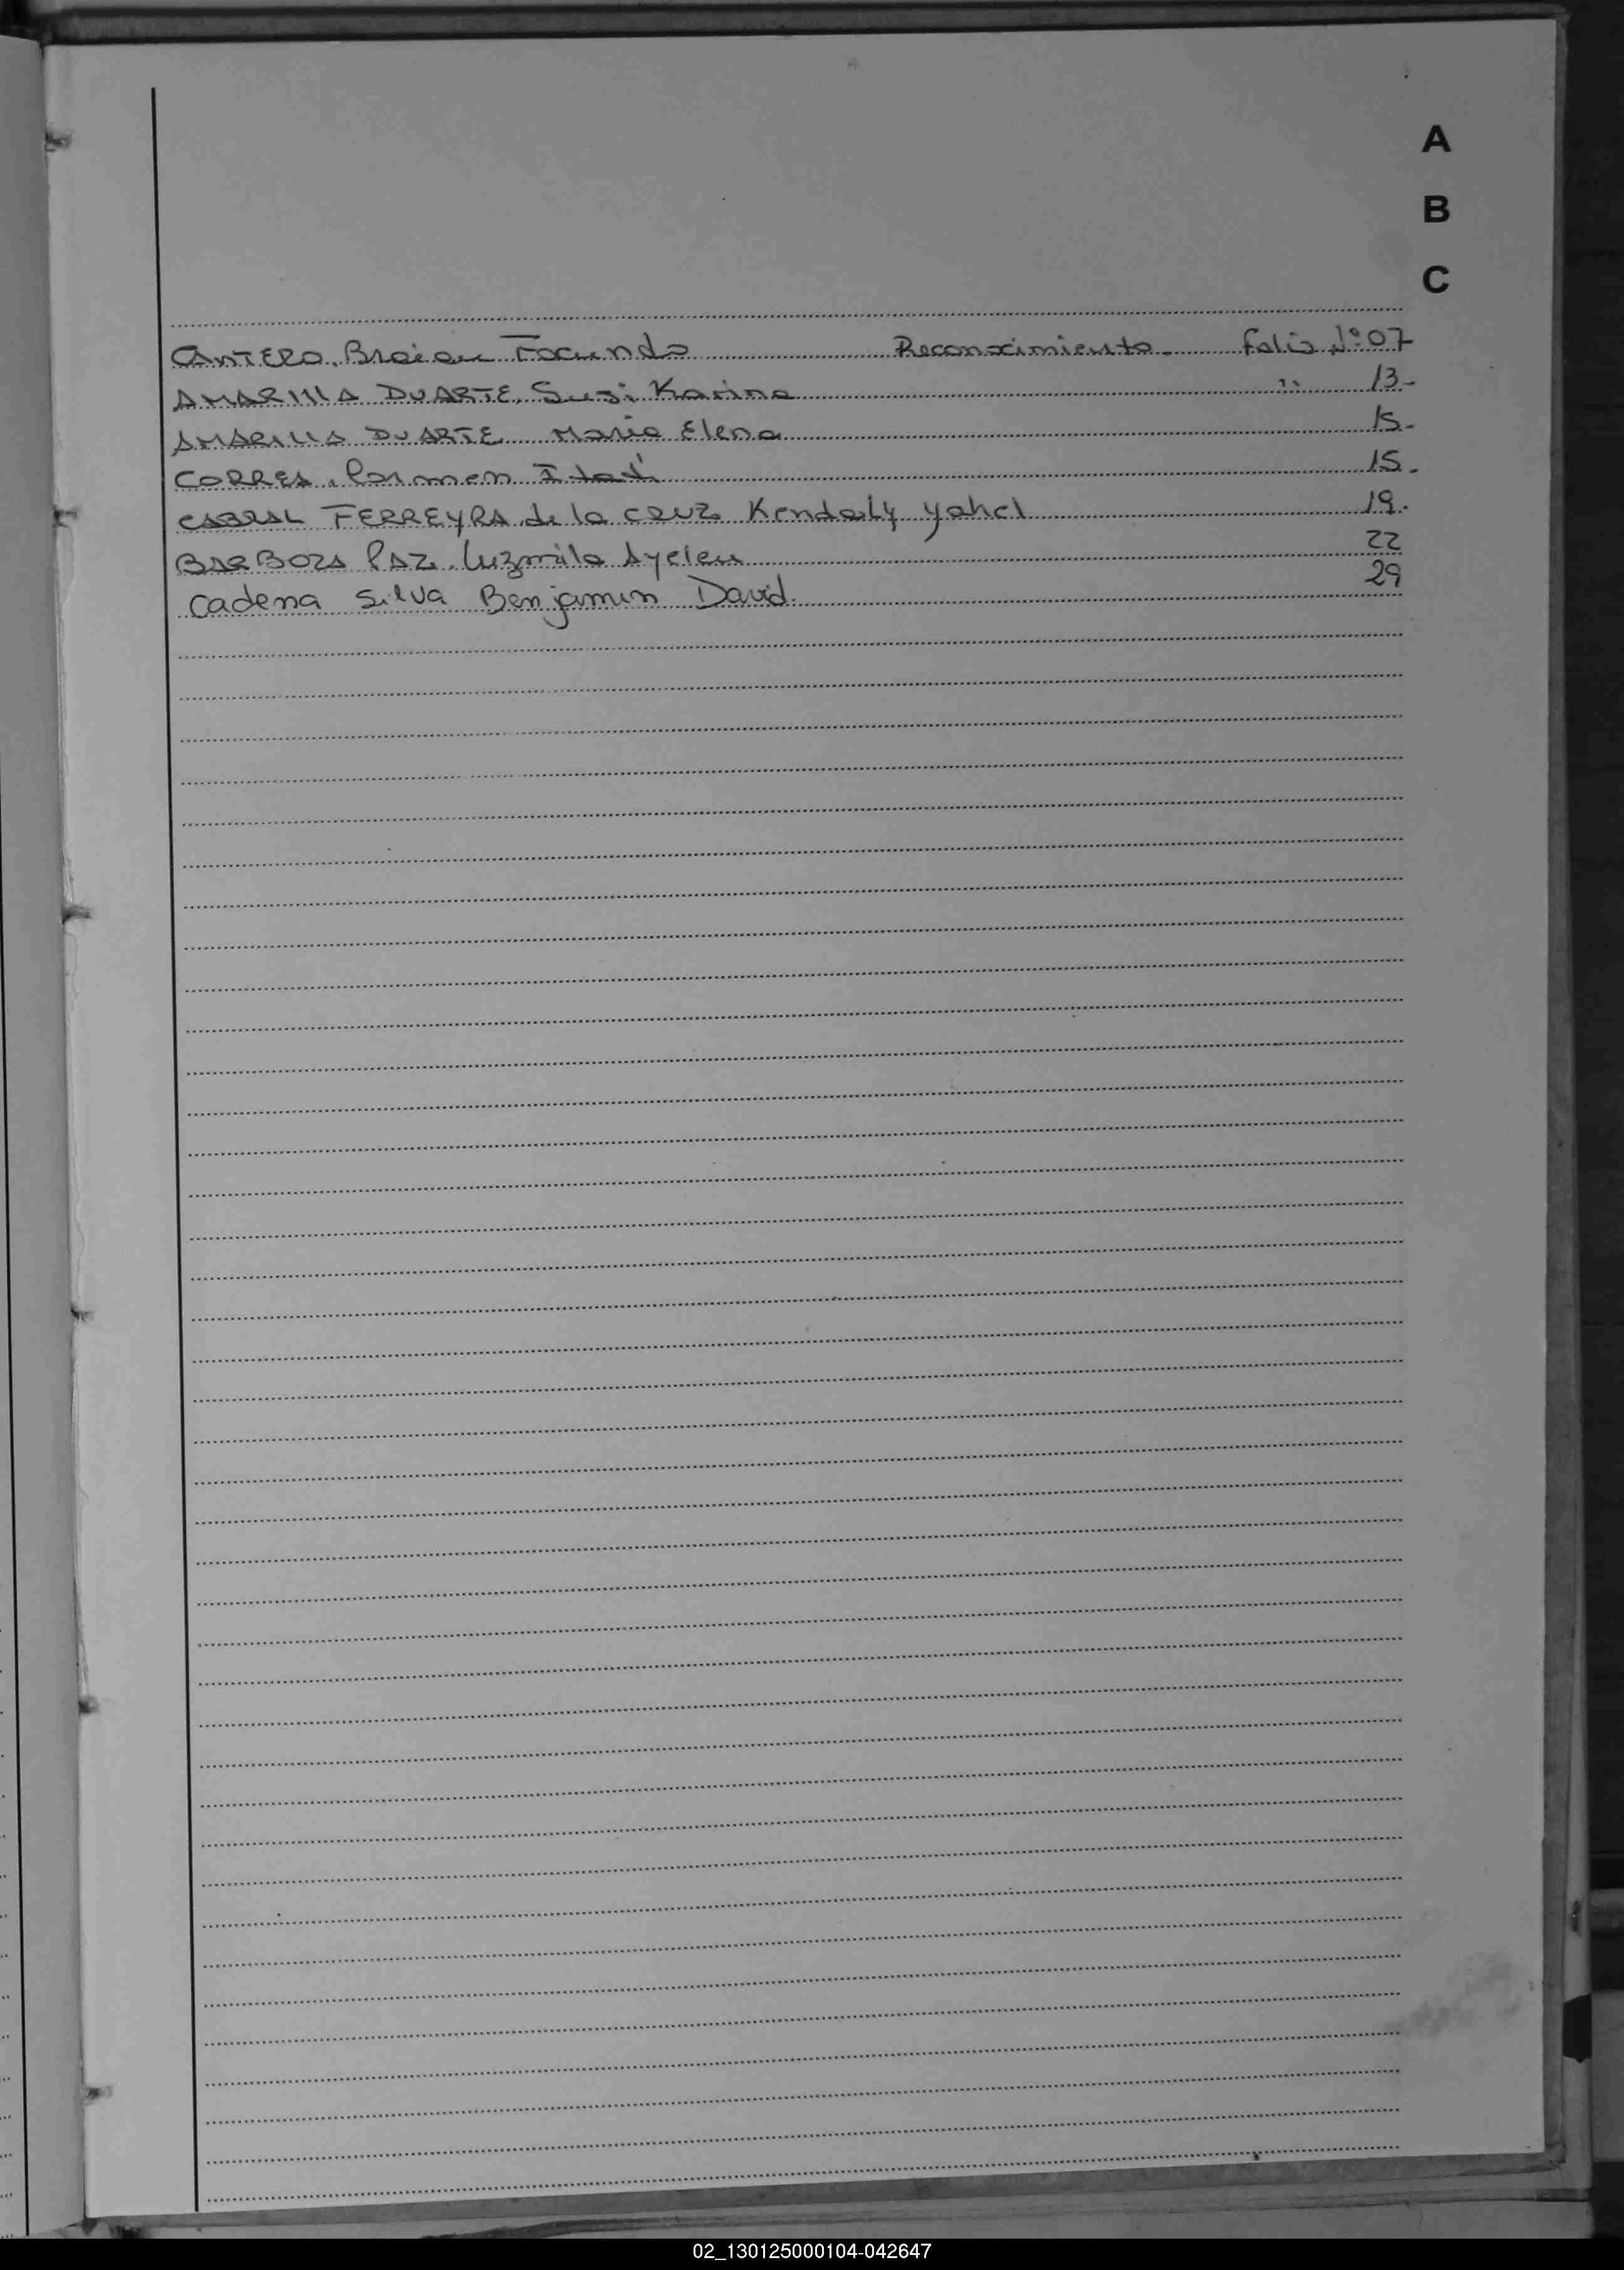 A
B
C
CANTERO, Braian Facundo Reconocimiento - folio Nº 07
AMARILLA DUARTE, Susi Karina " 13-
AMARILLA DUARTE Maria Elena 15-
CORREA, Carmen Itatí 15-
CABRAL FERREYRA de la CRUZ Kendaly yahel 19-
BARBOZA PAZ, Luzmila Ayelen 22
Cadena Silva Benjamin David 29
02_130125000104-042647